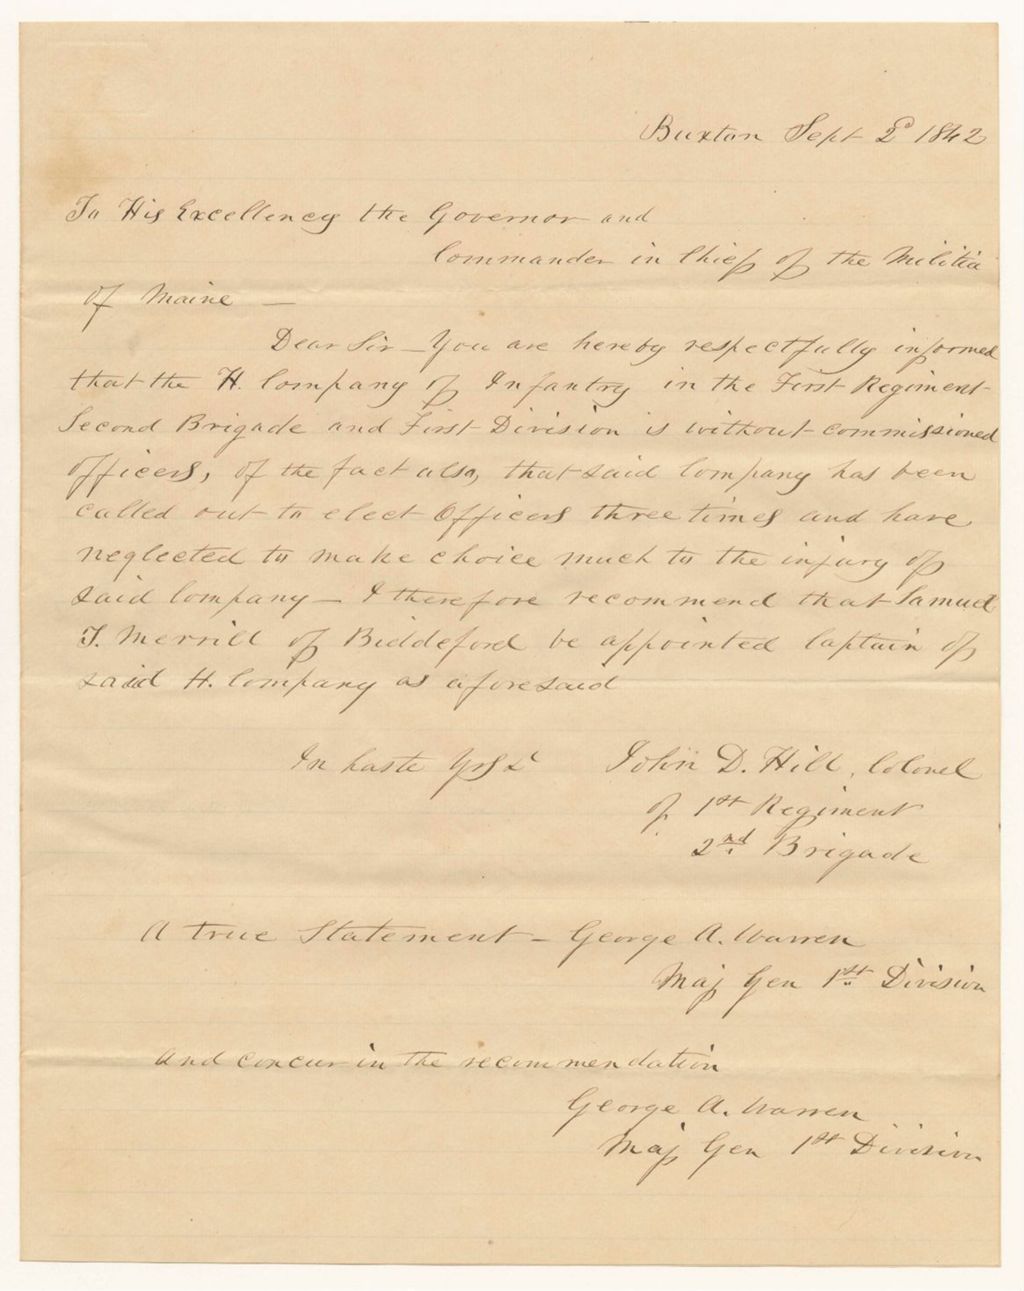 Buxton Sept 2d 1842
To His Excellency the Governor and
Commander in Chief of the Militia
of Maine —
Dear Sir — You are hereby respectfully informed
that the H. Company of Infantry in the First Regiment
Second Brigade and First Division is without commissioned
officers, of the fact also, that said Company has been
called out to elect Officers three times and have
neglected to make choice much to the injury of
said Company — I therefore recommend that Samuel
T. Merrill of Biddeford be appointed Captain of
said H. Company as aforesaid
In haste Yrs &c John D. Hill, Colonel
of 1st Regiment
2nd Brigade
A true Statement — George A. Warren
Maj Gen 1st Division
and concur in the recommendation
George A. Warren
Maj Gen 1st Division